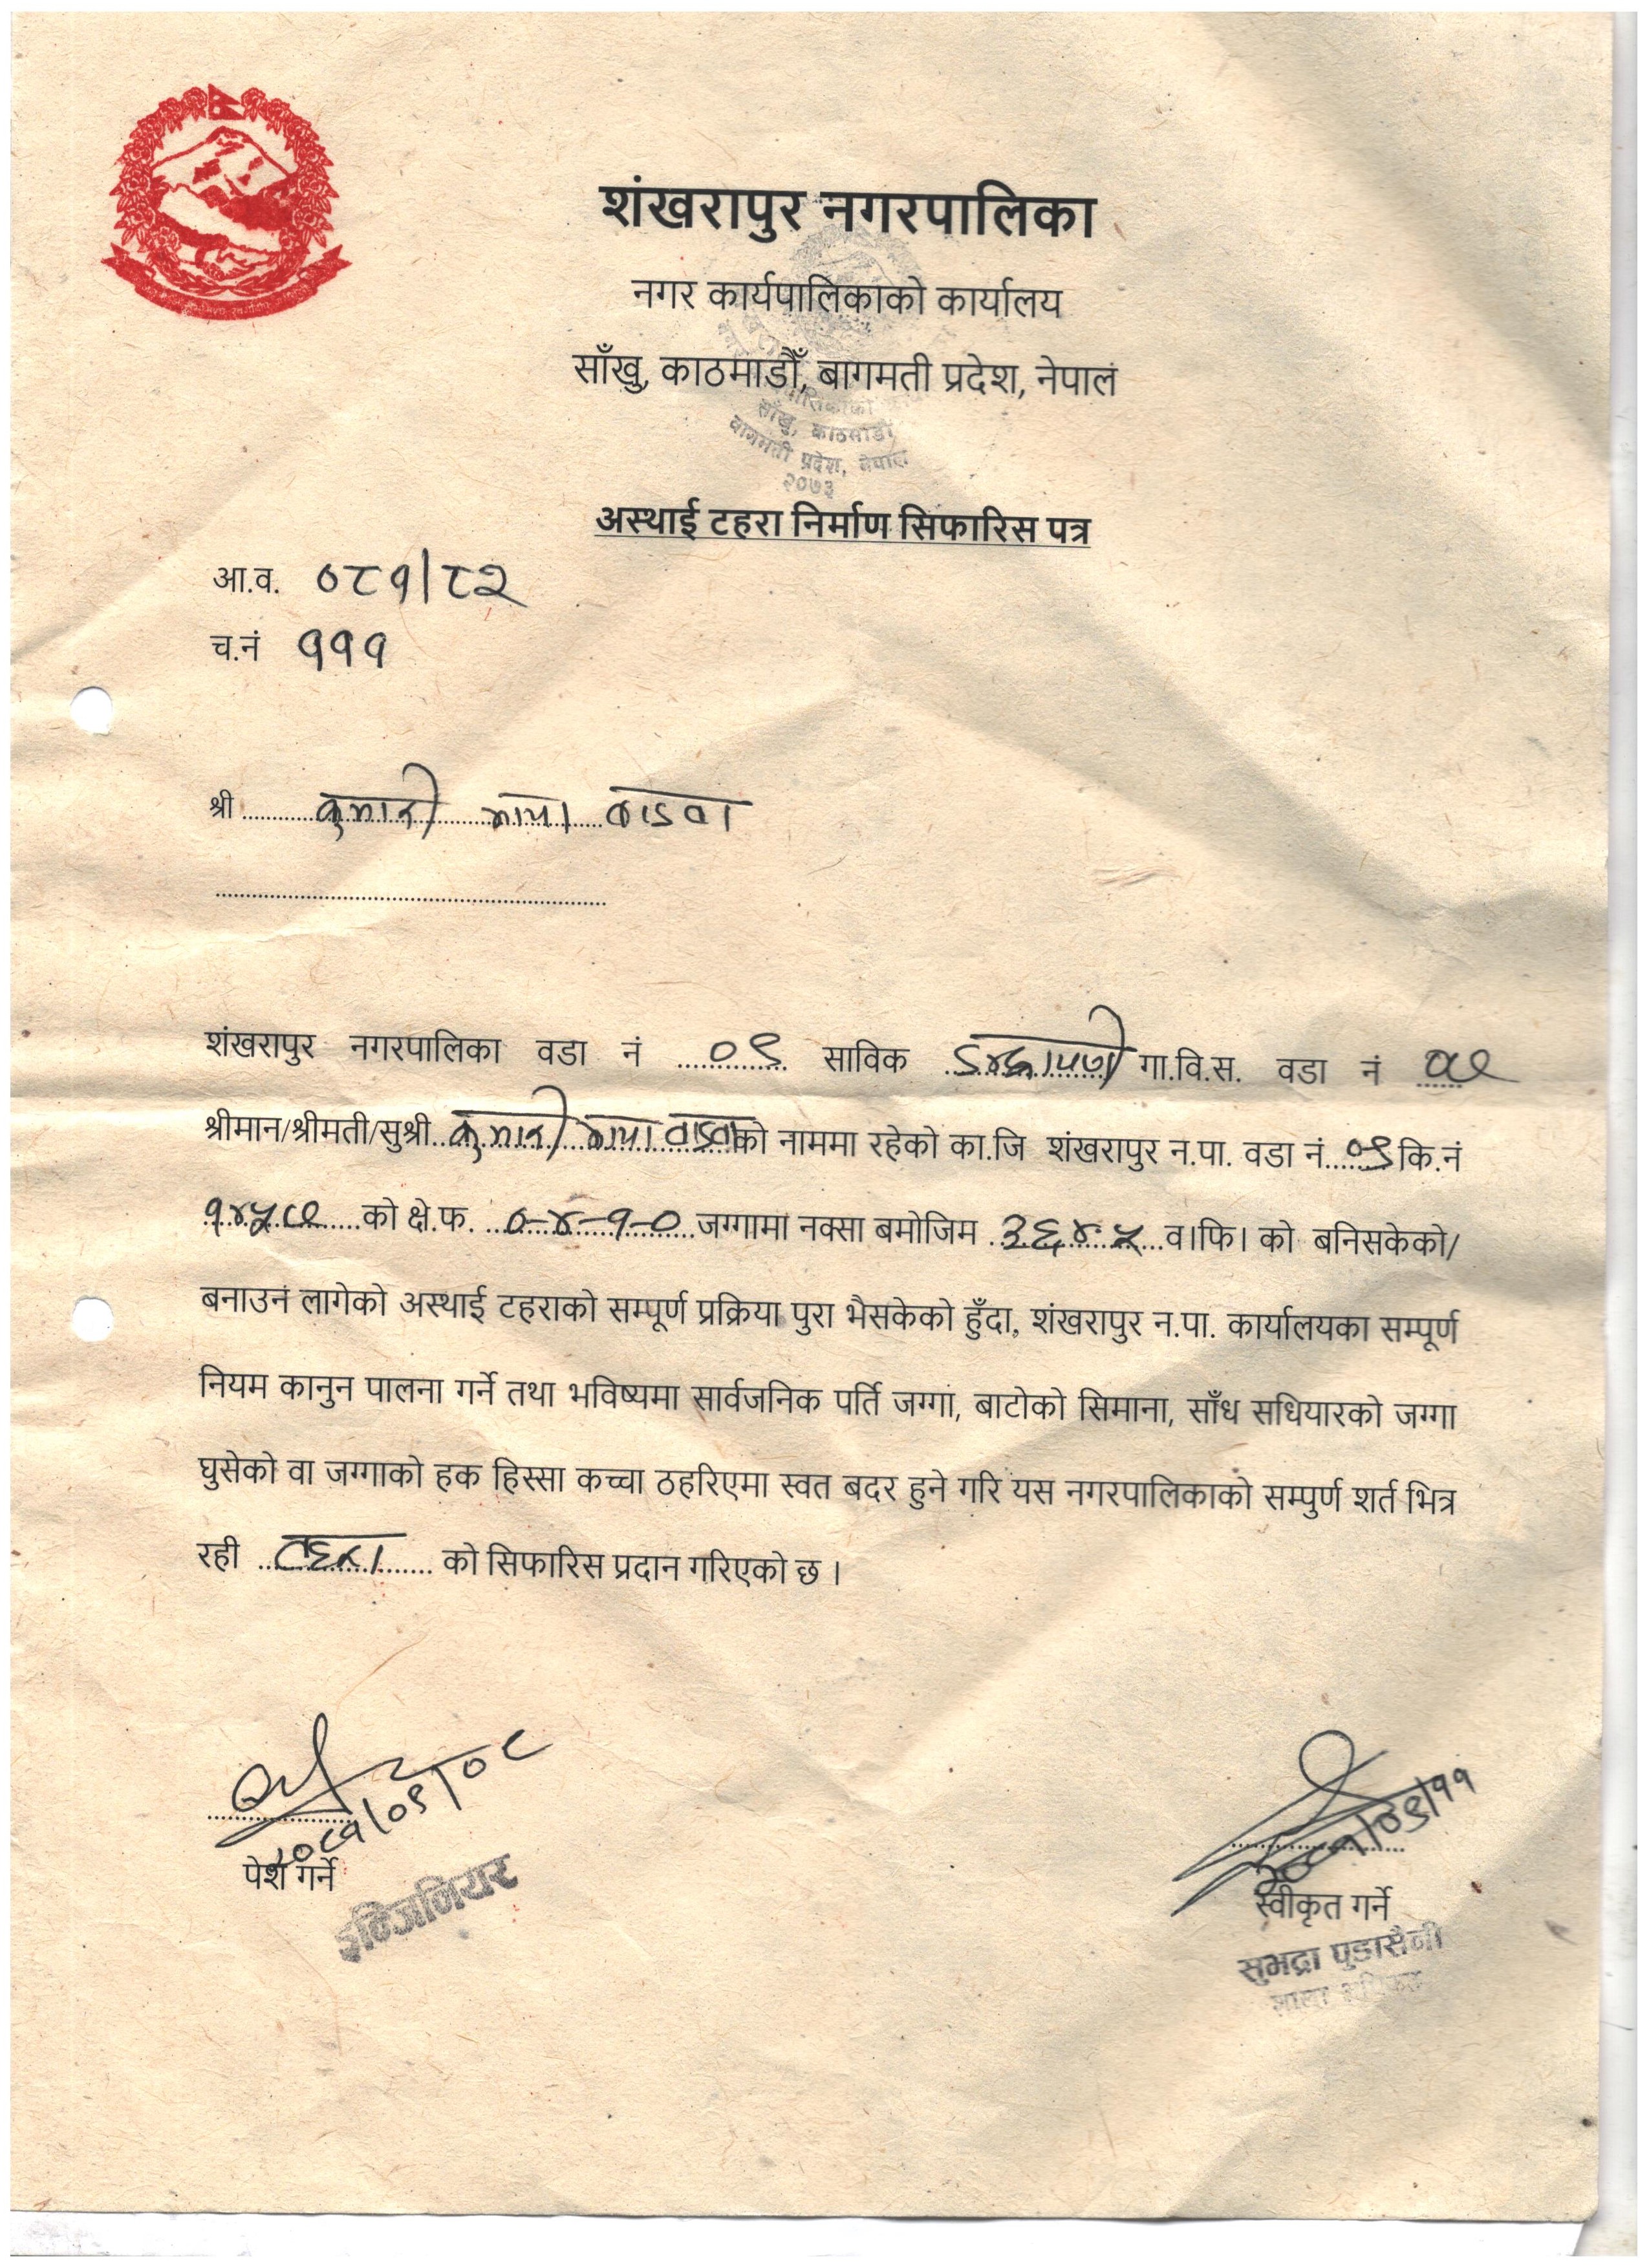 शंखरापुर नगरपालिका
नगर कार्यपालिकाको कार्यालय
साँखु, काठमाडौँ, बागमती प्रदेश, नेपाल
साँखु, काठमाडौं
बागमती प्रदेश, नेपाल
२०७३
अस्थाई टहरा निर्माण सिफारिस पत्र
आ.व. ०८१/८२
च.नं १११
श्री कुमारी माया
शंखरापुर नगरपालिका वडा नं ०९ साविक गा.वि.स. वडा नं
श्रीमान/श्रीमती/सुश्री कुमारी माया को नाममा रहेको का.जि शंखरापुर न.पा. वडा नं ०९ कि.नं
को क्षे.फ. ०-४-१-० जग्गामा नक्सा बमोजिम ३६४.५ व।फि। को बनिसकेको/
बनाउन लागेको अस्थाई टहराको सम्पूर्ण प्रक्रिया पुरा भैसकेको हुँदा, शंखरापुर न.पा. कार्यालयका सम्पूर्ण
नियम कानुन पालना गर्ने तथा भविष्यमा सार्वजनिक पर्ति जग्गा, बाटोको सिमाना, साँध सधियारको जग्गा
घुसेको वा जग्गाको हक हिस्सा कच्चा ठहरिएमा स्वत बदर हुने गरि यस नगरपालिकाको सम्पुर्ण शर्त भित्र
रही टहरा को सिफारिस प्रदान गरिएको छ ।
२०८१/०९/०८
पेश गर्ने
इन्जिनियर
२०८१/०९/११
स्वीकृत गर्ने
सुभद्रा पुडासैनी
शाखा अधिकृत